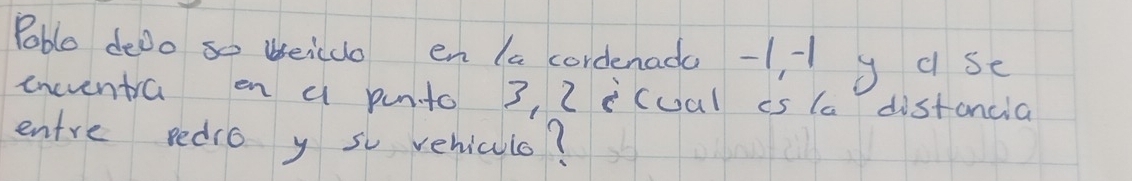 Pablo dejo so veiculo en la cordenada -1,-1 y el se
encuentra en el punto 3,2 ¿cual es la distancia
entre pedro y su vehiculo?